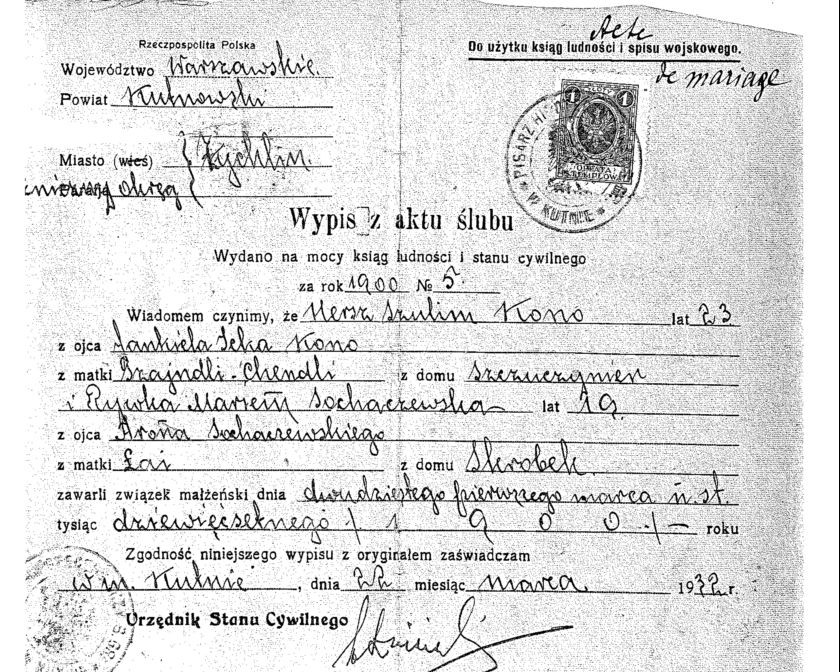 Acte
Rzeczpospolita Polska
Do użytku ksiąg ludności i spisu wojskowego.
de mariage
Województwo Warszawskie.
Powiat Kutnowski
Miasto (wieś) Żychlin.
okręg
1 1
PISARZ W KUTNIE
Wypis z aktu ślubu
Wydano na mocy ksiąg ludności i stanu cywilnego
za rok 1900 № 5.
Wiadomem czynimy, że Hersz Szulim Kono lat 23
z ojca Jankiela Kono
z matki Szajndli-Chendli z domu
i Rywka Sochaczewska lat 19
z ojca Arona Sochaczewskiego
z matki Łai z domu Skrobek.
zawarli związek małżeński dnia dwudziestego pierwszego marca n. st.
tysiąc dziewięćsetnego /1 9 0 0/— roku
Zgodność niniejszego wypisu z oryginałem zaświadczam
w m. Kutnie, dnia 22 miesiąc marca 1932 r.
Urzędnik Stanu Cywilnego